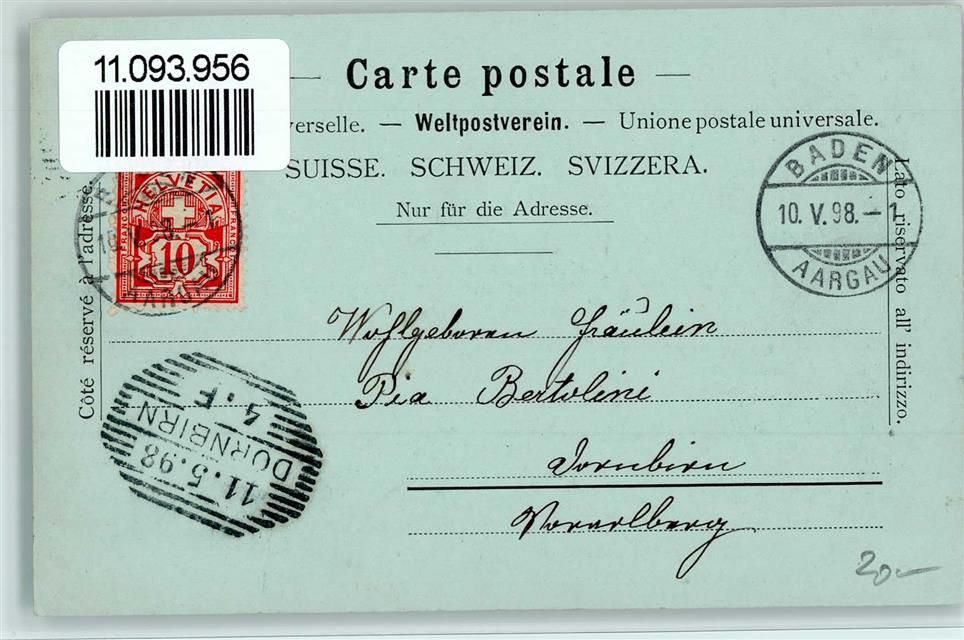 11.093.956
Carte postale
verselle. — Weltpostverein. — Unione postale universale.
SUISSE. SCHWEIZ. SVIZZERA.
Nur für die Adresse.
Côté réservé à l'adresse.
Lato riservato all' indirizzo.
HELVETIA
FRANCO
FRANCO
10
BADEN
10. V. 98. – 1
AARGAU
Wohlgeboren Fräulein
Pia Bertolini
Dornbirn
Vorarlberg
11. 5. 98
DORNBIRN
4. F
20.–